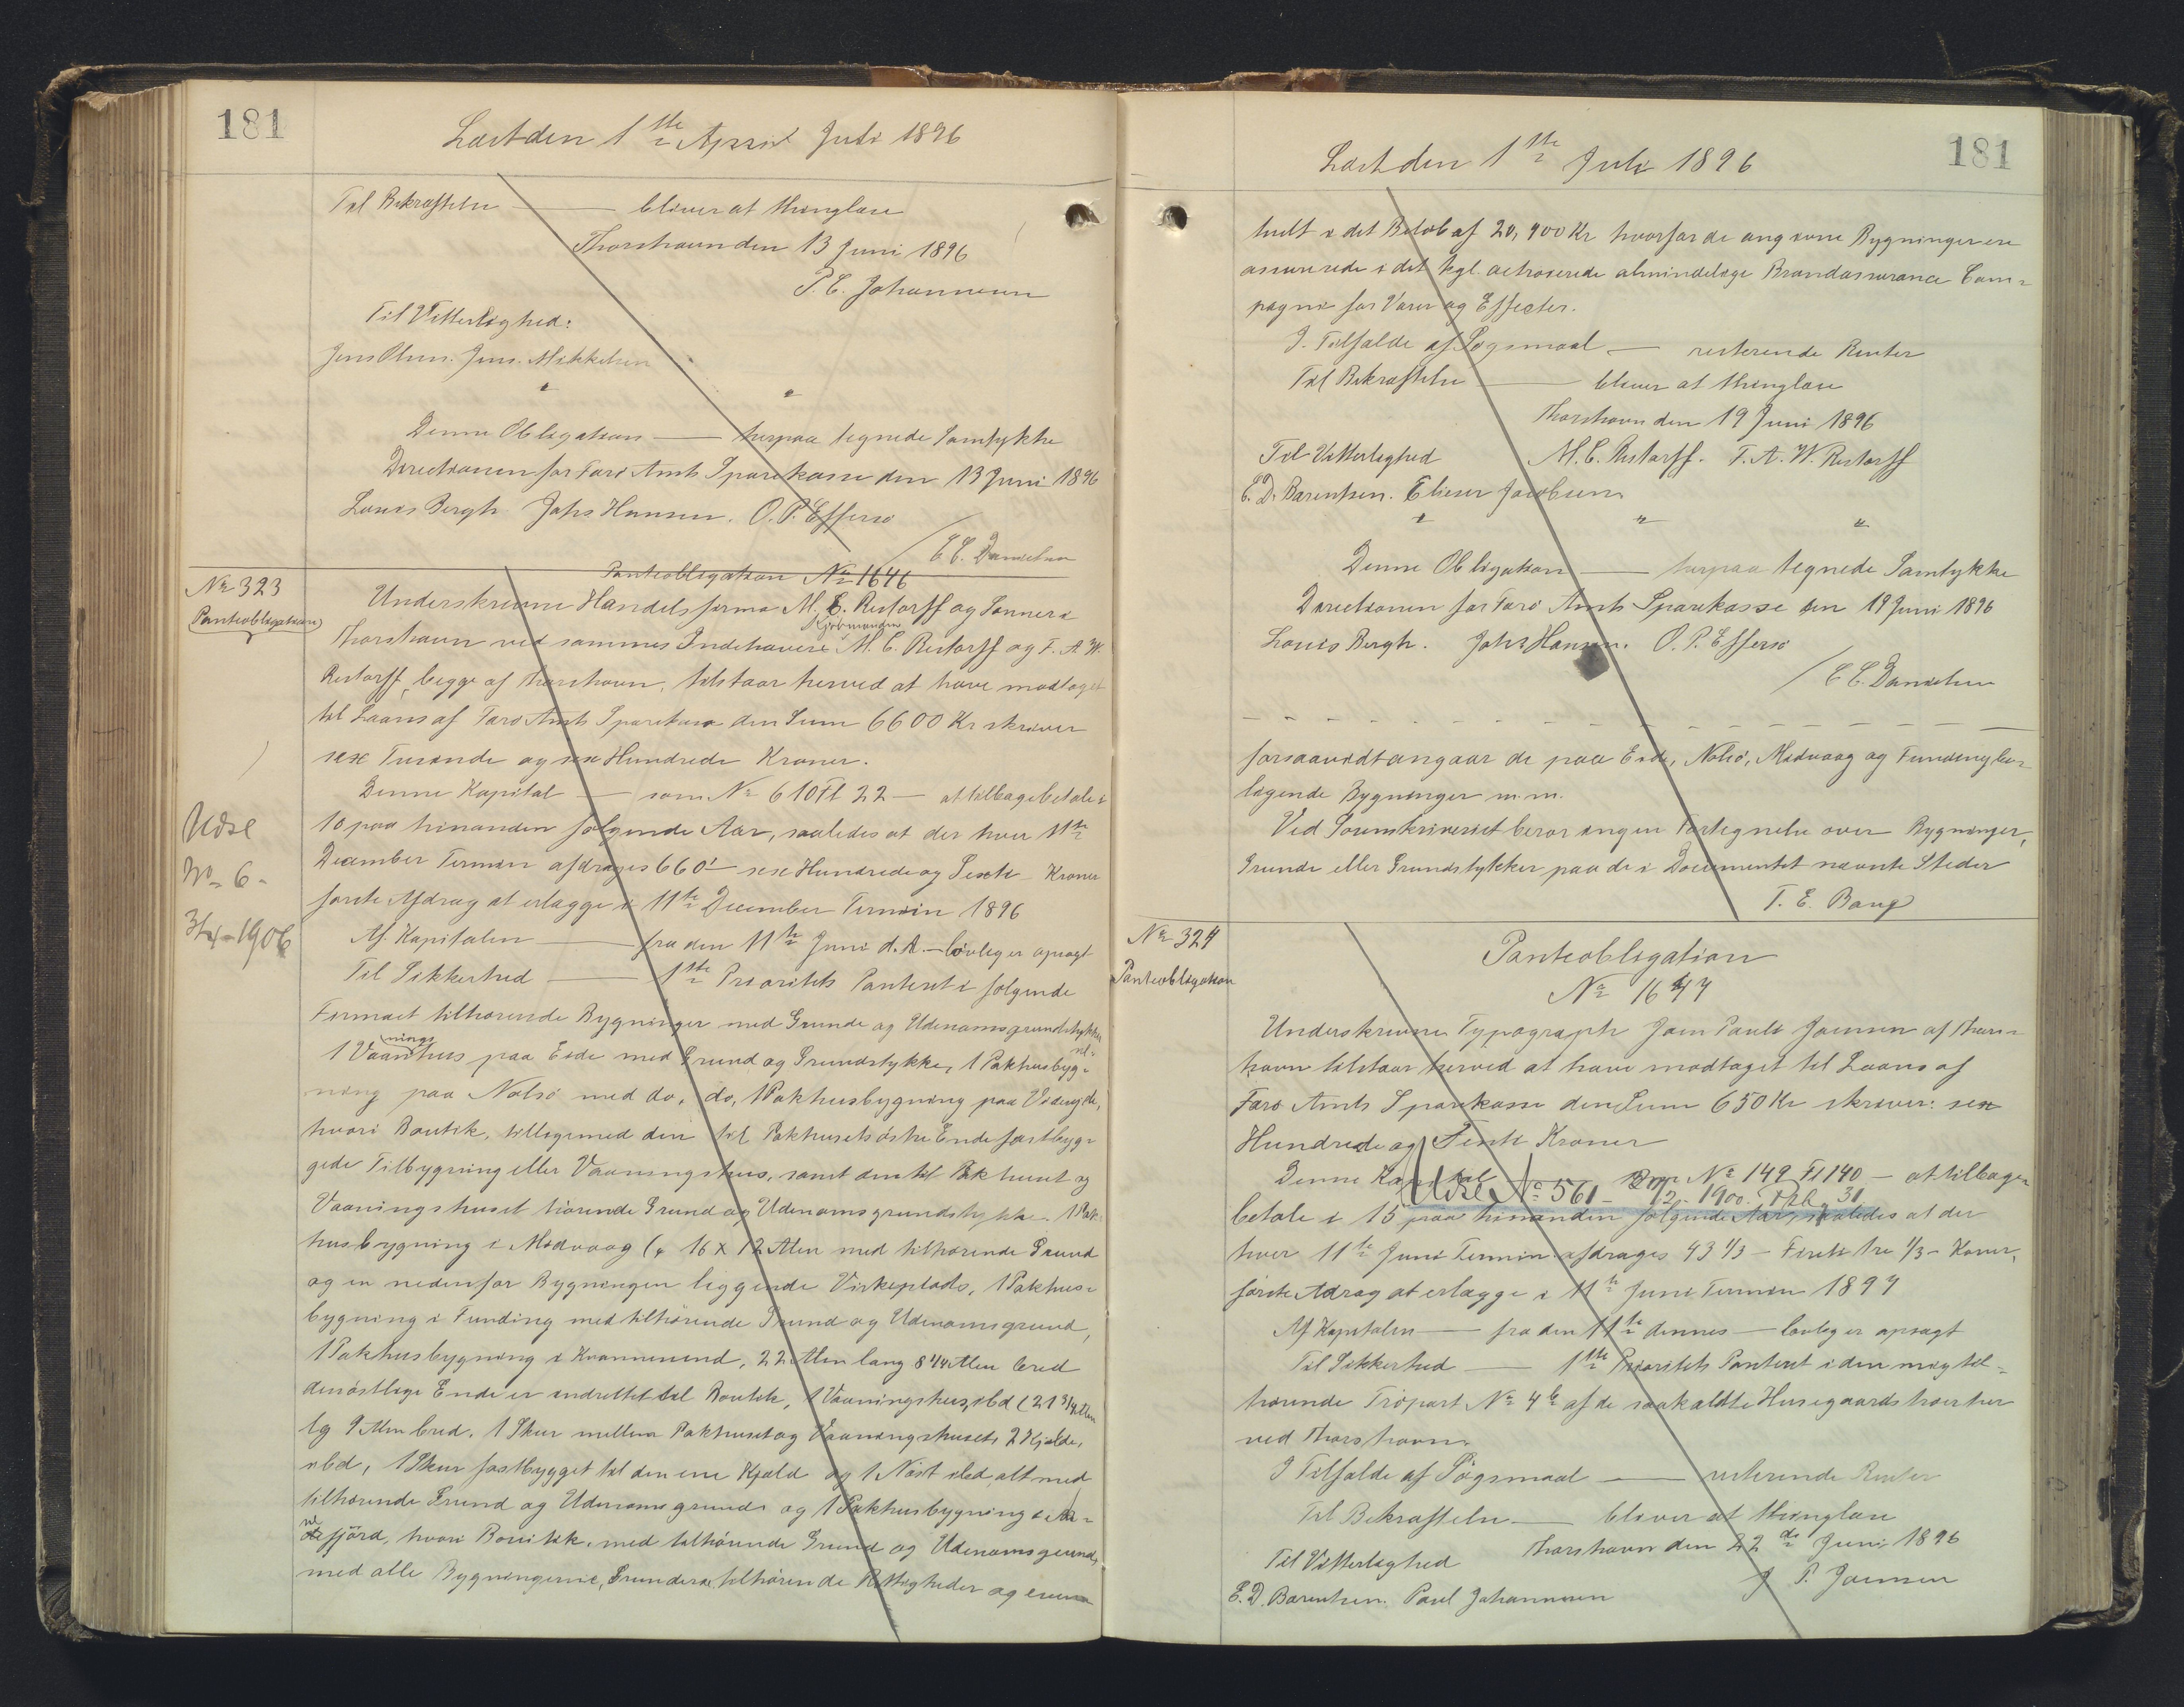 181
Læst den 1ste April Juli 1896
Til Bekræftelse — bliver at thinglæse
Thorshavn den 13 Juni 1896
P. C. Johannesen
Til Vitterlighed:
Jens Olsen. Jens. Mikkelsen
" "
Denne Obligation — herpaa tegnede Samtykke
Directionen for Færø Amts Sparekasse den 13 Juni 1896
Louis Bergh Johs Hansen. O. P. Effersø
/ C C. Danielsen
Panteobligation № 1646
№ 323
Panteobligation
Underskrevne Handelsfirma M. C. Restorff og Sønner i
Kjøbmændene
Thorshavn ved sammes Indehavere M. C. Restorff og F. A. W.
Restorff, begge af Thorshavn, tilstaar herved at have modtaget
til Laans af Færø Amts Sparekasse den Sum 6600 Kr skriver
sex Tusinde og sex Hundrede Kroner.
Denne Kapital — som № 610 Fl 22 — at tilbagebetale i
10 paa hinanden følgende Aar, saaledes at der hver 11te
December Termin afdrages 660 — sex Hundrede og Sexti Kroner
første Afdrag at erlægge i 11te December Termin 1896
Udsl
№ 6 -
3/4 - 1906
Af Kapitalen — fra den 11te Juni d. A. — lovlig er opsagt
Til Sikkerhed — 1ste Prioritets Panteret i følgende
Firmaet tilhørende Bygninger med Grunde og Udenomsgrundstykker
1 Vaaningshus paa Eide med Grund og Grundstykke, 1 Pakhusbyg-
ning paa Nolsø med do, do, 1 Pakhusbygning paa Videreide,
hvori Boutik, tilligemed den til Pakhusets østre Ende fastbyg-
gede Tilbygning eller Vaaningshus, samt den til Pakhuset og
Vaaningshuset hørende Grund og Udenomsgrundstykke. 1 Pak-
husbygning i Midvaag (16 x 12 Alen med tilhørende Grund
og en nedenfor Bygningen liggende Virkeplads, 1 Pakhus-
bygning i Funding med tilhørende Grund og Udenomsgrund,
1 Pakhusbygning i Kvannesund, 22 Alen lang 8 1/4 Alen bred
den østlige Ende er indrettet til Boutik, 1 Vaaningshus, ibd (21 3/4 Alen
lg 9 Alen bred. 1 Skur mellem Pakhuset og Vaaningshuset, 2 Hjelde,
ibd, 1 Skur fastbygget til den ene Hjeld og 1 Nøst ibd, alt med
tilhørende Grund og Udenomsgrunde og 1 Pakhusbygning i
fjørd, hvori Boutik, med tilhørende Grund og Udenomsgrund,
med alle Bygningerne, Grundene tilhørende Rettigheder og
181
Læst den 1ste Juli 1896
hvilt i det Beløb af 20,900 Kr hvorfor de angivne Bygninger ere
assurerede i det kgl. octroierede almindelige Brandassurance Com-
pagni for Varer og Effecter.
I. Tilfælde af Søgsmaal — resterende Renter
Til Bekræftelse — bliver at thinglæse
Thorshavn den 19 Juni 1896
Til Vitterlighed M. C. Restorff. F. A. W. Restorff
E. D. Barentsen. Elieser Jacobsen
" " "
Denne Obligation — herpaa tegnede Samtykke
Directionen for Færø Amts Sparekasse den 19 Juni 1896
Louis Bergh. Johs Hansen. O. P. Effersø
/ C C. Danielsen
forsaavidt angaar de paa Eide, Nolsø, Midvaag og Funding be-
liggende Bygninger m. m.
Ved Sorenskriveriet beror ingen Fortegnelse over Bygninger,
Grunde eller Grundstykker paa de i Documentet nævnte Steder
T. E. Bang
№ 324
Panteobligation
Panteobligation
№ 1647
Underskrevne Typograph Joen Pauli Joensen af Thors-
havn tilstaar herved at have modtaget til Laans af
Færø Amts Sparekasse den Sum 650 Kr skriver: sex
Hundrede og Femti Kroner
Denne Kapital — som № 149 Fl 140 — at tilbage-
Udsl. № 561 - 1900.
betale i 15 paa hinanden følgende Aar, saaledes at der
hver 11te Juni Termin afdrages 43 1/3 — Firti tre 1/3 — Kroner,
første Adrag at erlægge i 11te Juni Termin 1897
Af Kapitalen — fra den 11te dennes — lovlig er opsagt
Til Sikkerhed — 1ste Prioritets Panteret i den mig til-
hørende Trøpart № 4b af de saakaldte Husegaards her
ved Thorshavn.
I Tilfælde af Søgsmaal — resterende Renter
Til Bekræftelse — bliver at thinglæse
Thorshavn den 22de Juni 1896
Til Vitterlighed J P. Joensen
E. D. Barentsen. Paul Johannesen